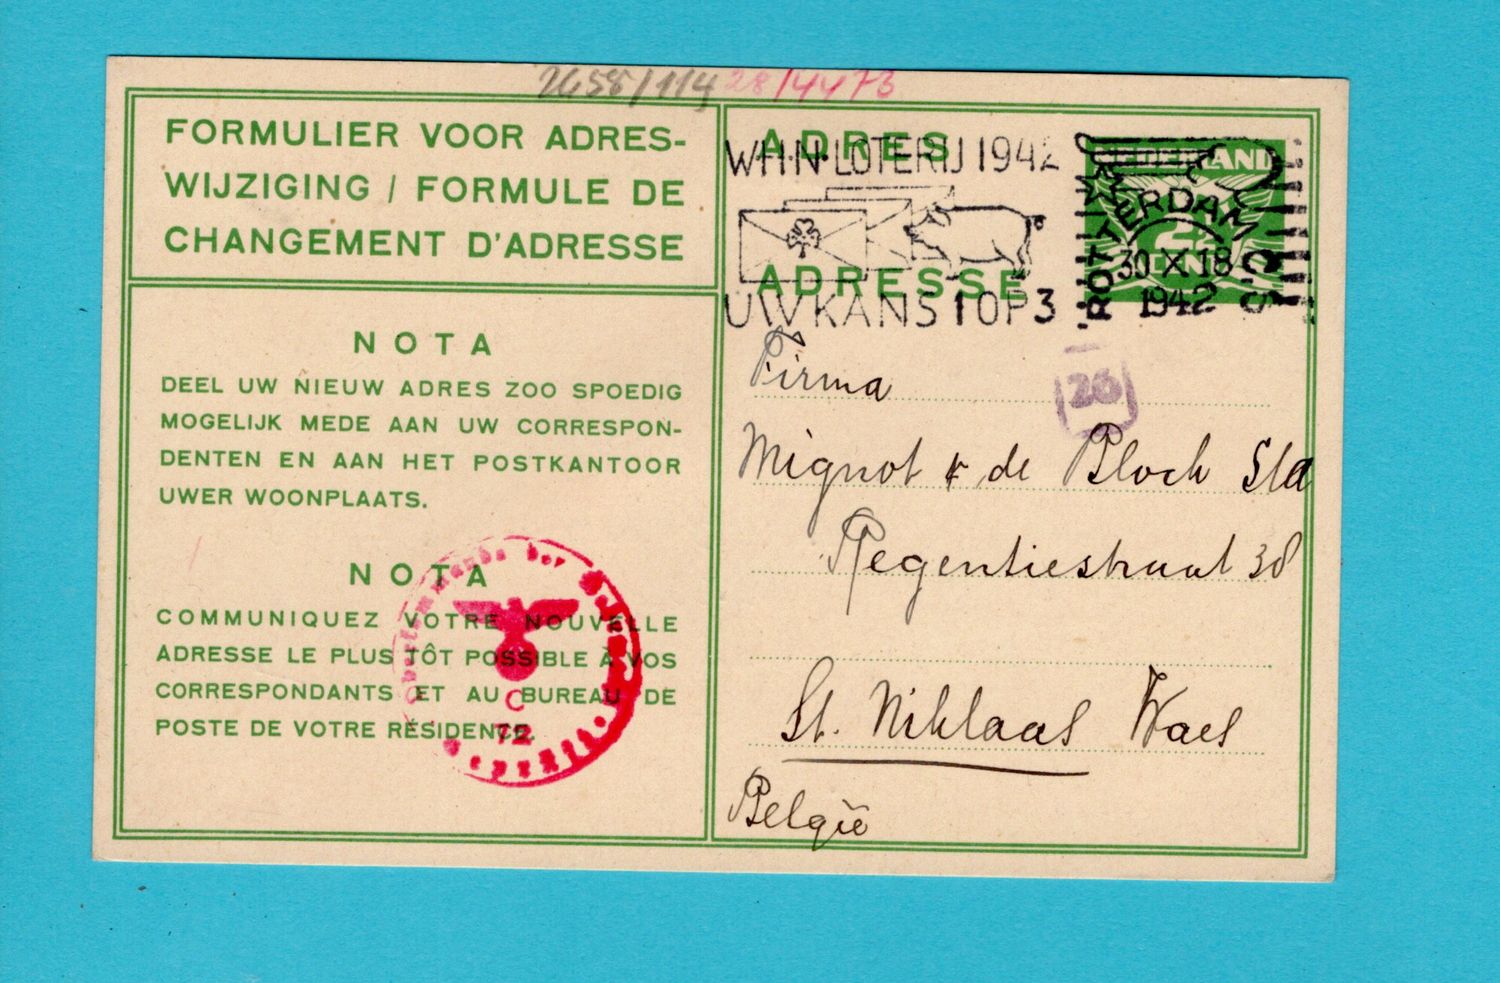 2658/114 28/4473
FORMULIER VOOR ADRES-
WIJZIGING / FORMULE DE
CHANGEMENT D'ADRESSE
NOTA
DEEL UW NIEUW ADRES ZOO SPOEDIG
MOGELIJK MEDE AAN UW CORRESPON-
DENTEN EN AAN HET POSTKANTOOR
UWER WOONPLAATS.
NOTA
COMMUNIQUEZ VOTRE NOUVELLE
ADRESSE LE PLUS TÔT POSSIBLE À VOS
CORRESPONDANTS ET AU BUREAU DE
POSTE DE VOTRE RÉSIDENCE.
der
C
72
ADRES
W.H.N. LOTERIJ 1942
ADRESSE
UW KANS 1 OP 3
NEDERLAND
ROTTERDAM
30 X 18
1942
26
Firma
Mignot & de Block
Regentiestraat 38
St. Niklaas Waes
België